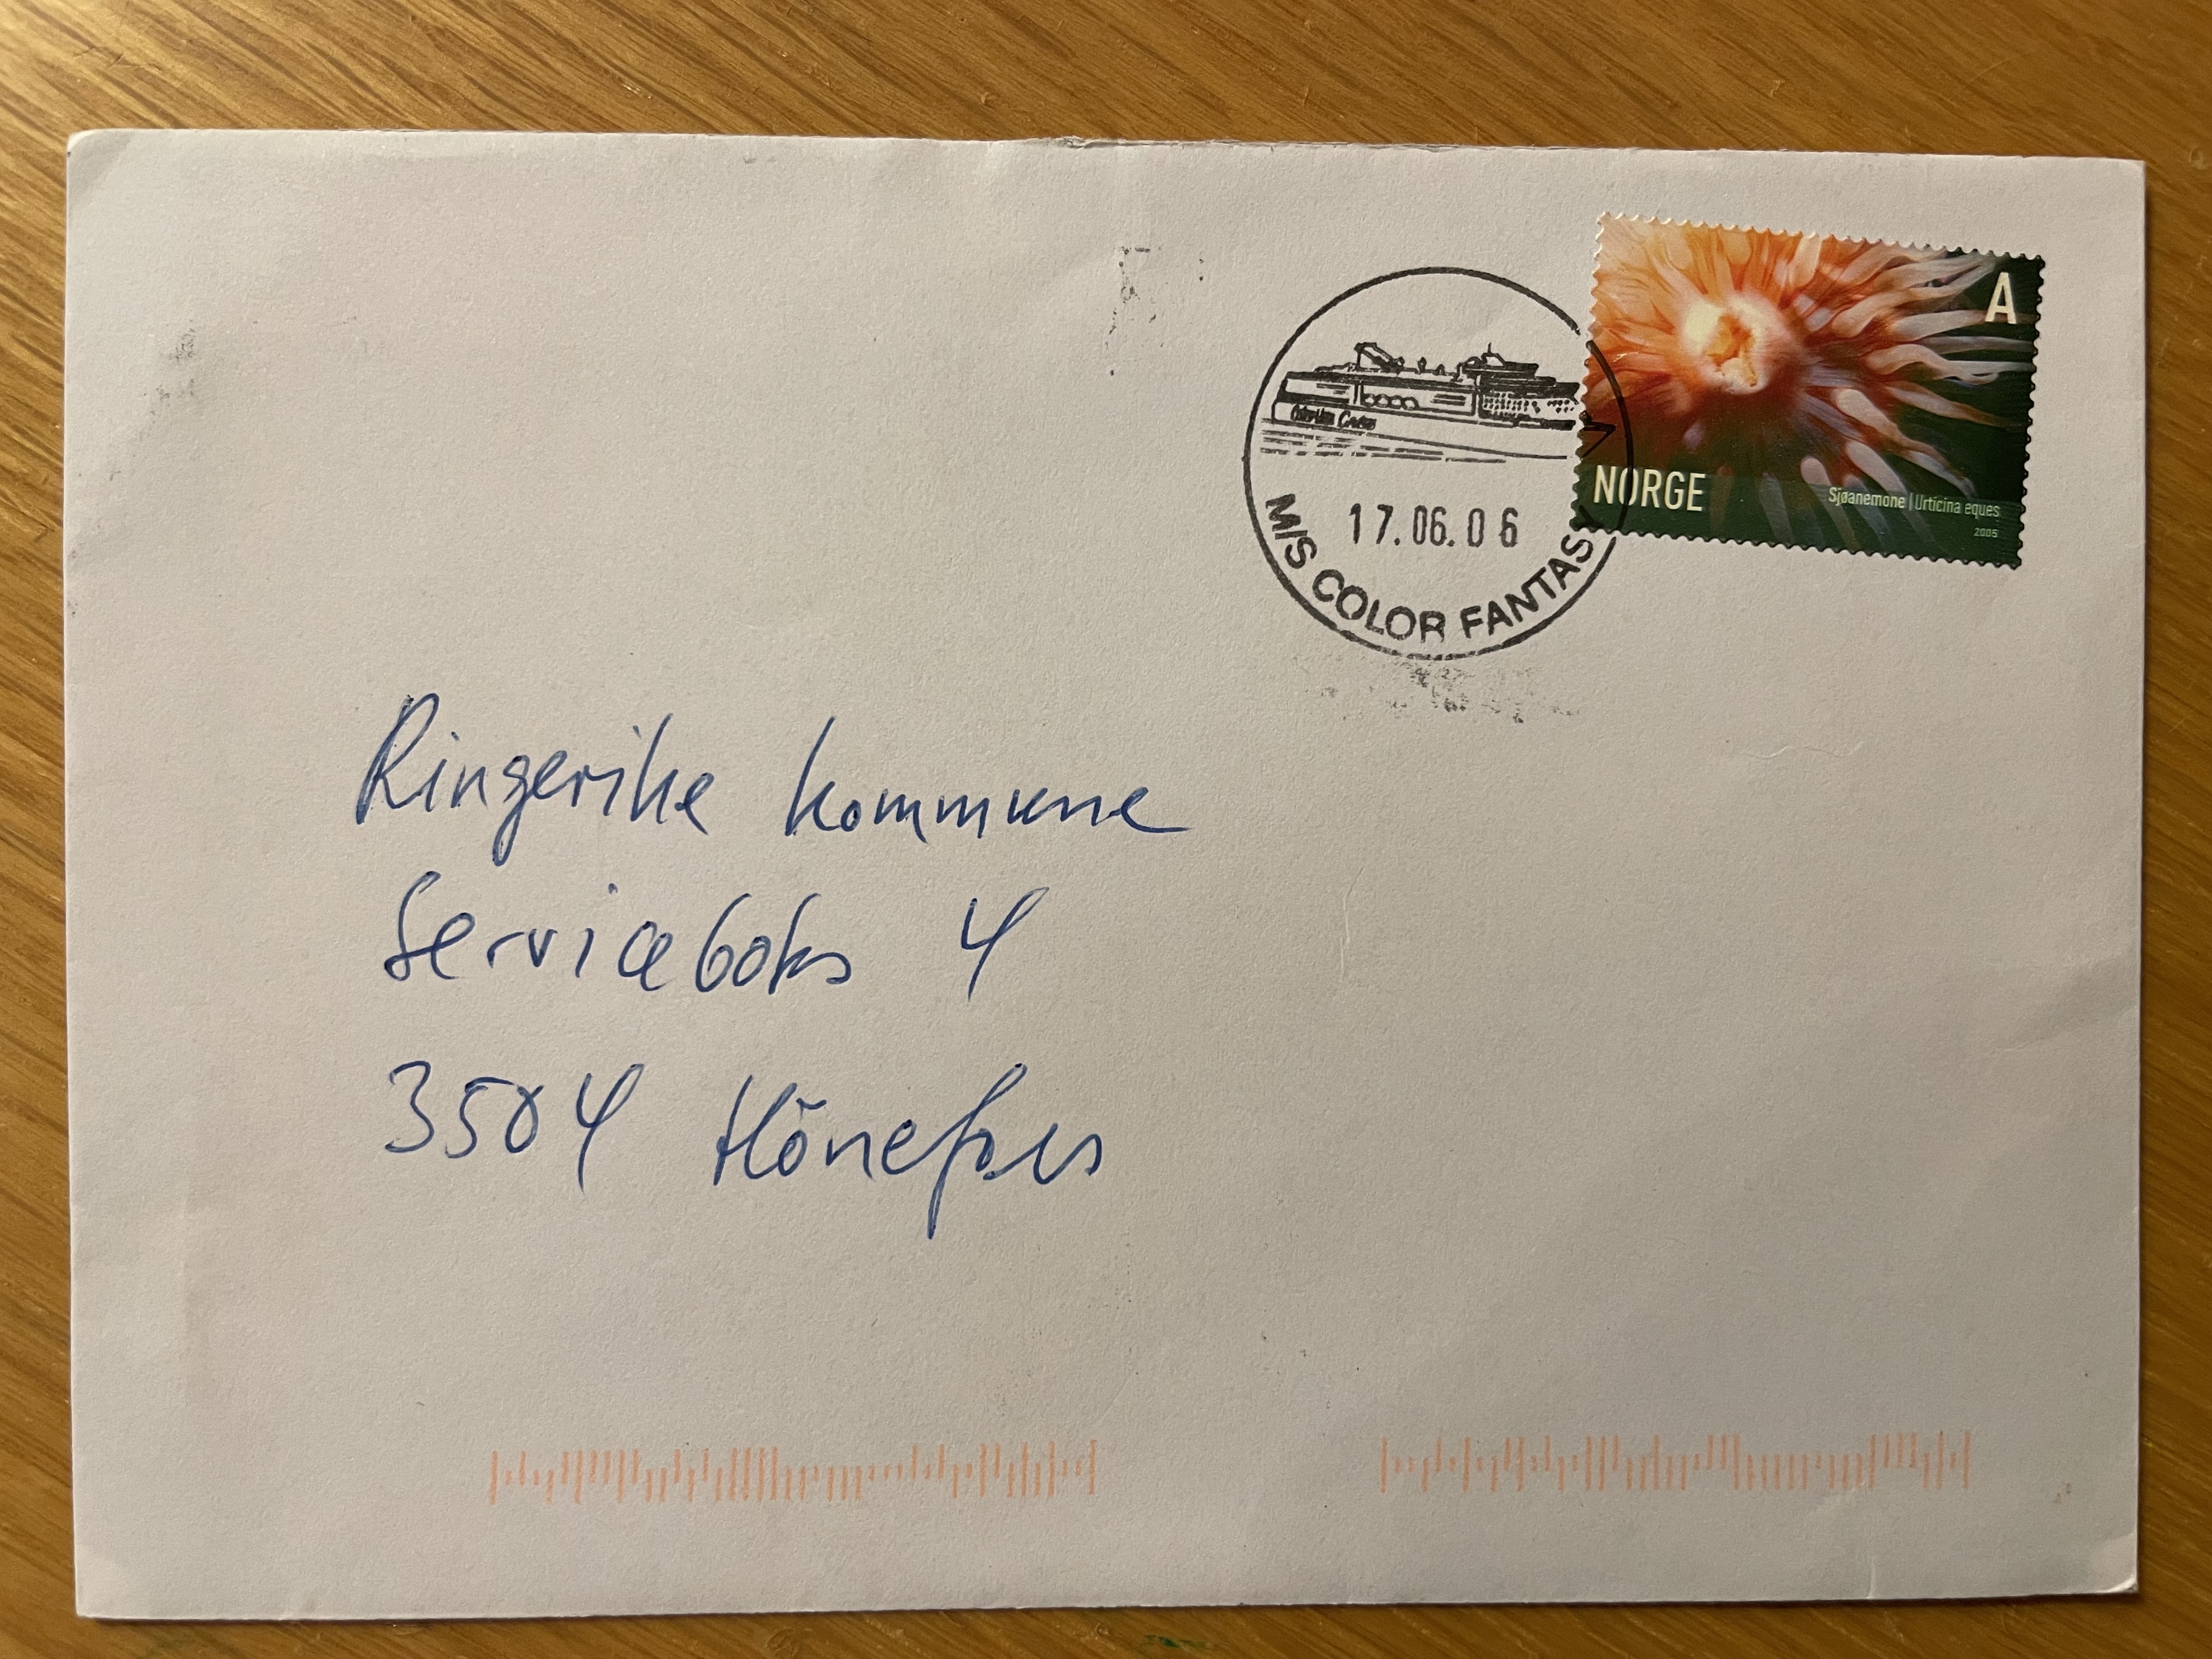 A
NORGE
Sjøanemone | Urticina eques
2005
17.06.06
M/S COLOR FANTASY
Ringerike kommune
Serviceboks 4
3504 Hõnefoss